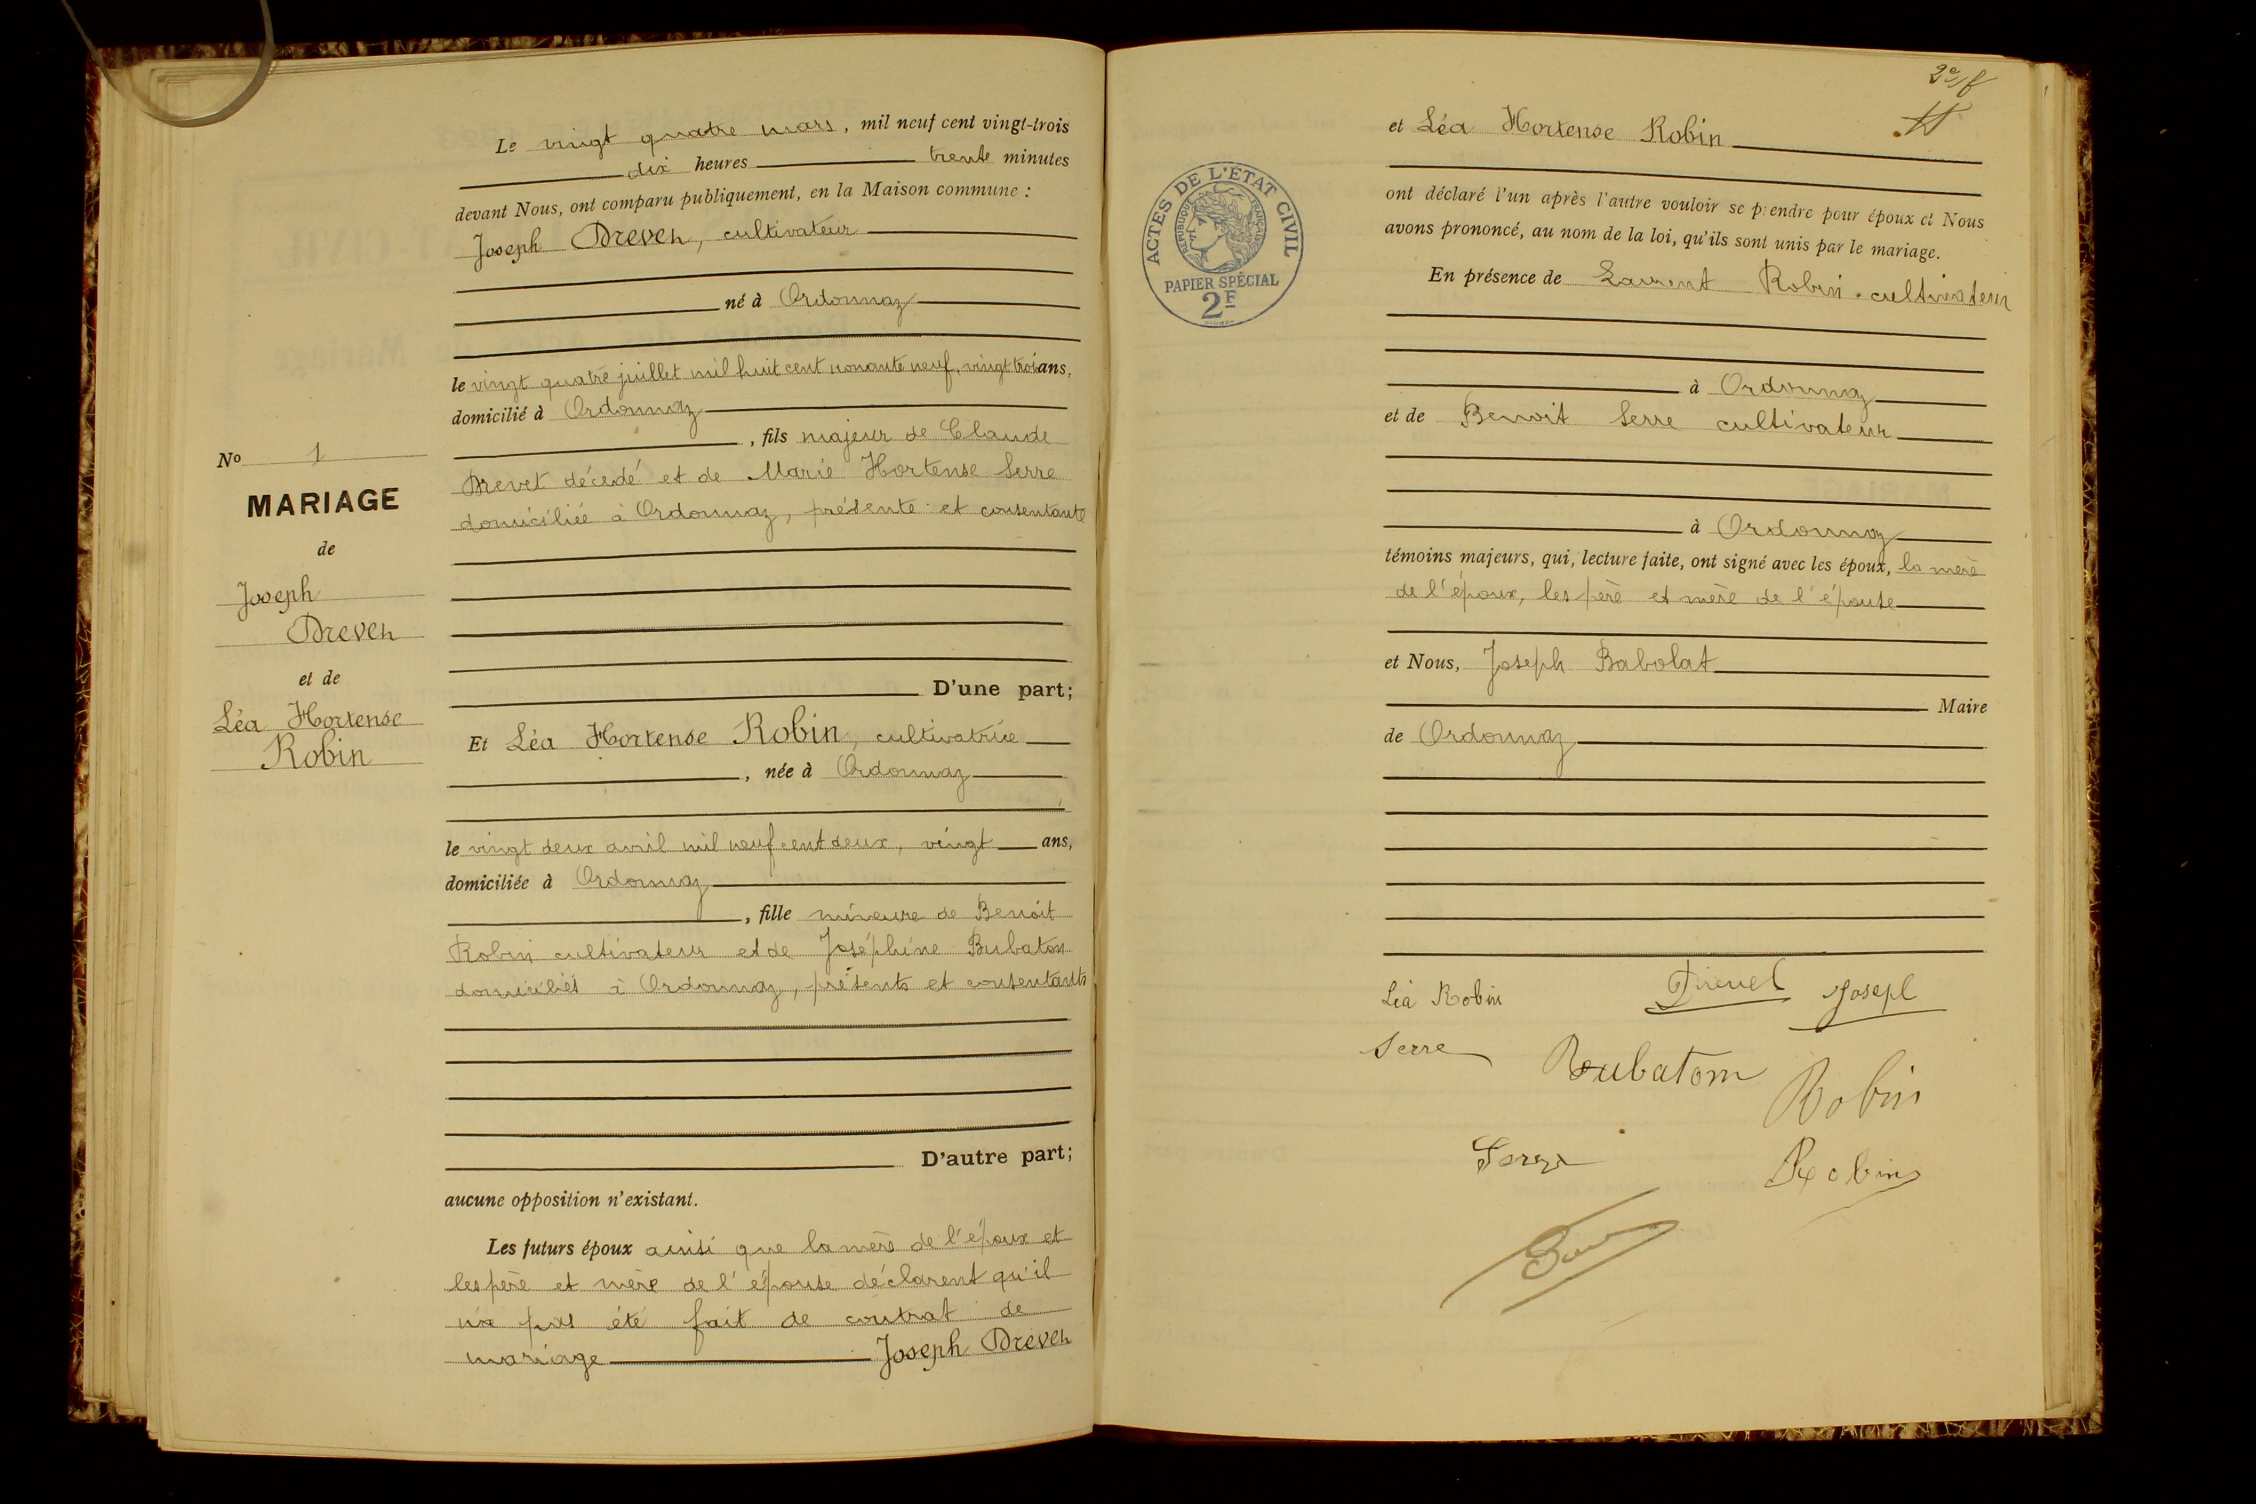 Le vingt quatre mars, mil neuf cent vingt-trois
dix heures trente minutes
devant Nous, ont comparu publiquement, en la Maison commune :
Joseph Drevet, cultivateur
né à Ordonnaz
le vingt quatre juillet mil huit cent nonante neuf, vingt trois ans,
domicilié à Ordonnaz
, fils majeur de Claude
Drevet décédé et de Marie Hortense Serre
domiciliée à Ordonnaz, présente et consentante
D'une part;
Et Léa Hortense Robin, cultivatrice
, née à Ordonnaz
le vingt deux avril mil neuf cent deux, vingt ans,
domiciliée à Ordonnaz
, fille mineure de Benoît
Robin cultivateur et de Joséphine Bubaton
domiciliés à Ordonnaz, présents et consentants
D'autre part;
aucune opposition n'existant.
Les futurs époux ainsi que la mère de l'époux et
les père et mère de l'épouse déclarent qu'il
n'a pas été fait de contrat de
mariage Joseph Drevet
No 1
MARIAGE
de
Joseph
Drevet
et de
Léa Hortense
Robin
et Léa Hortense Robin
ont déclaré l'un après l'autre vouloir se prendre pour époux et Nous
avons prononcé, au nom de la loi, qu'ils sont unis par le mariage.
En présence de Laurent Robin, cultivateur
à Ordonnaz
et de Benoit Serre cultivateur
à Ordonnaz
témoins majeurs, qui, lecture faite, ont signé avec les époux, la mère
de l'époux, les père et mère de l'épouse
et Nous, Joseph Babolat
Maire
de Ordonnaz
ACTES DE L'ÉTAT CIVIL
RÉPUBLIQUE FRANÇAISE
PAPIER SPÉCIAL
2F
Léa Robin
Drevet Joseph
Serre
Bubaton
Robin
Robin